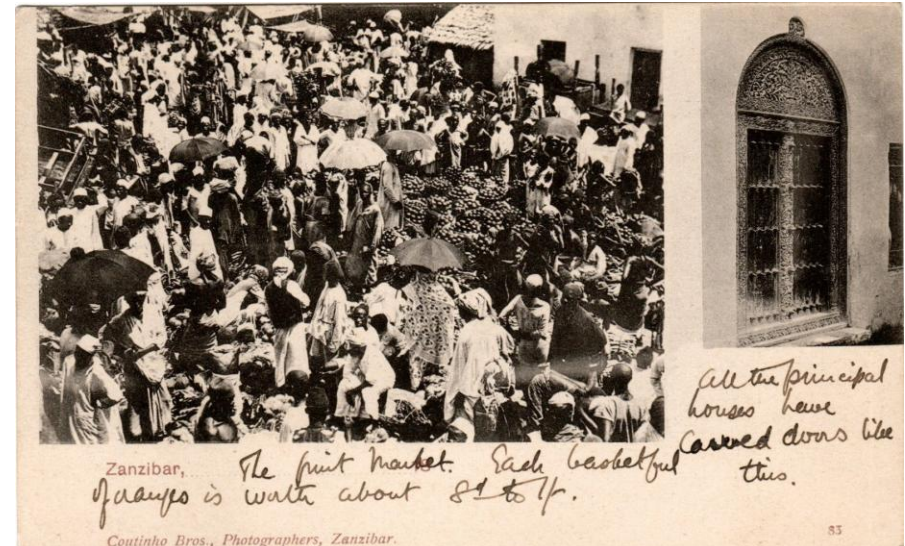 All the principal
houses have
carved doors like
this.
Zanzibar, The fruit market. Each basketful
of oranges is worth about 8d to 1/-.
Coutinho Bros., Photographers, Zanzibar.
83